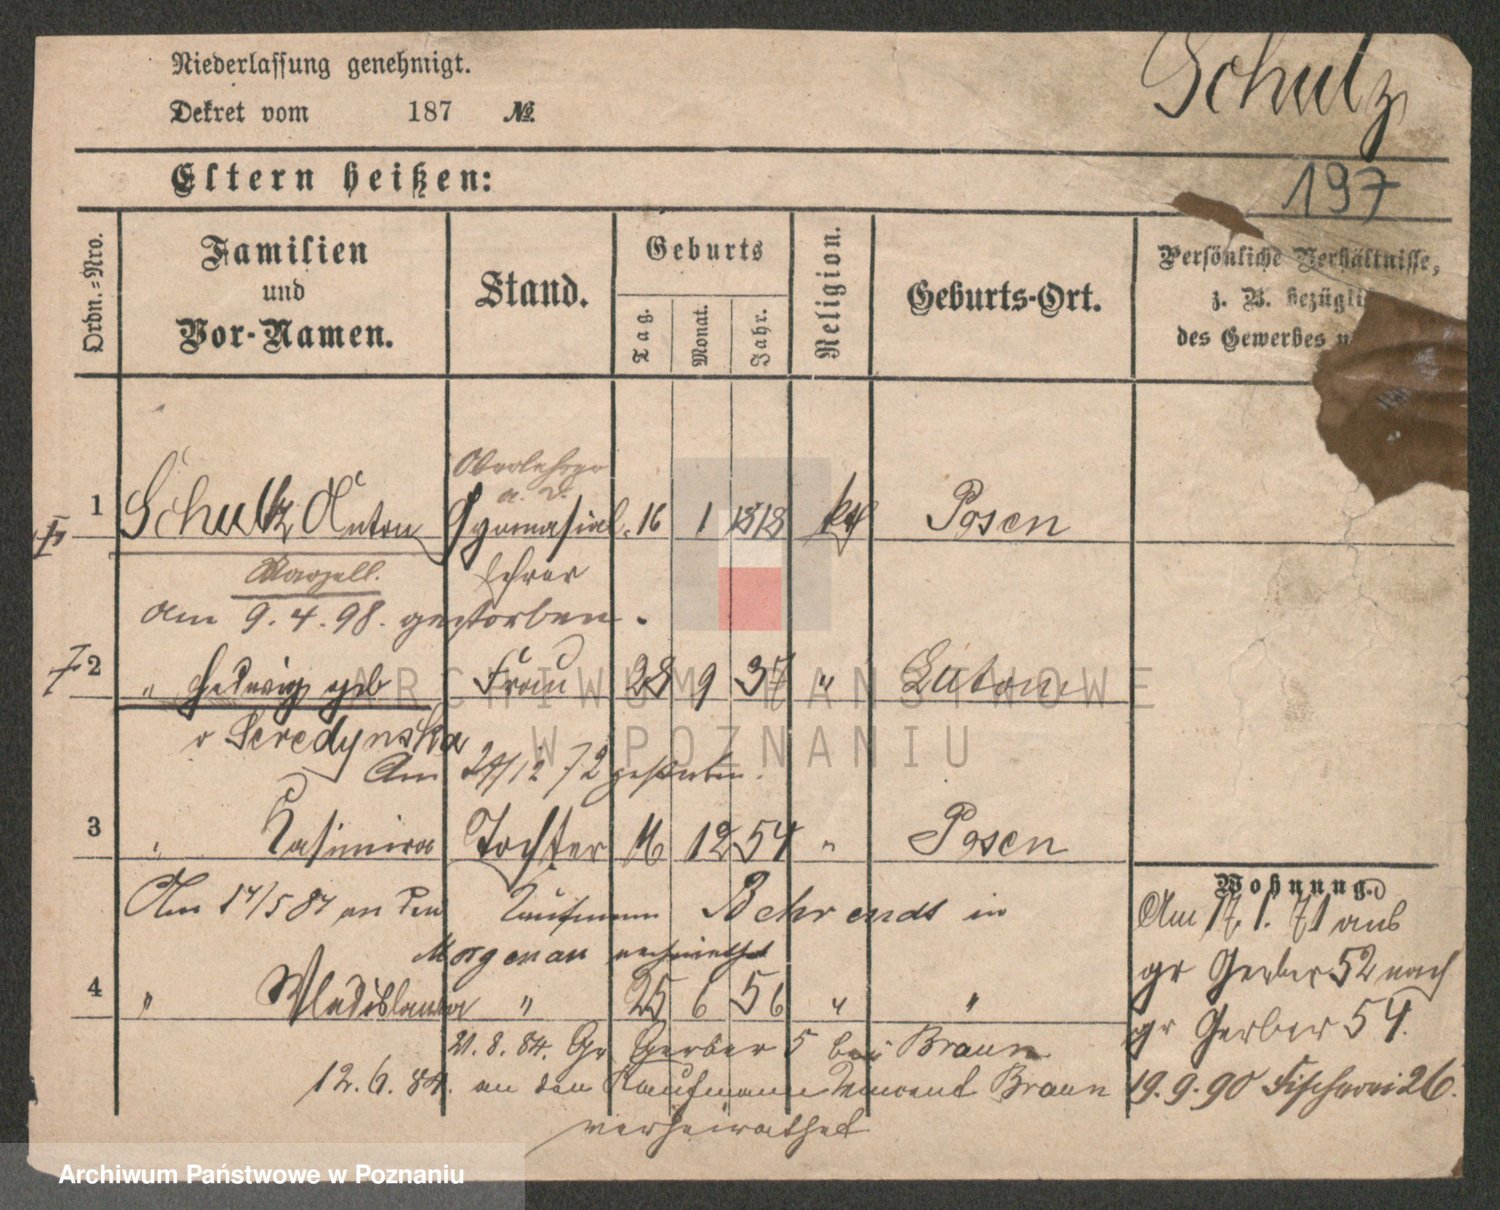 Niederlassung genehmigt.
Schulz
Dekret vom 187 №
Eltern heißen:
197
Ordn.-Nro.
Familien und Vor-Namen.
Stand.
Geburts
Tag.
Monat.
Jahr.
Religion.
Geburts-Ort.
Persönliche Verhältnisse,
z. B. bezügli
des Gewerbes
Oberlehrer
a. D.
1 Schultz Anton Gymnasial- 16 1 1818 kath Posen
lehrer
am 9. 4. 98. gestorben.
2 " Hedwig geb Frau 28 9 37 " Lutom
Seredynska
Am 24/12 72 gestorben.
3 " Kasimira Tochter 16 12 54 " Posen
Wohnung.
Am 17/5 87 an den Kaufmann Behrends in
Morgenau verheirathet
Am 17. 1. 71 aus
gr Gerber 52 nach
gr Gerber 54.
4 " Wladislawa " 25 6 56 " "
21. 8. 84. Gr Gerber 5 bei Braun
12. 6. 84. an den Kaufmann Vincent Braun
verheirathet
19. 9. 90 Fischerei 26.
ARCHIWUM PAŃSTWOWE
W POZNANIU
Archiwum Państwowe w Poznaniu